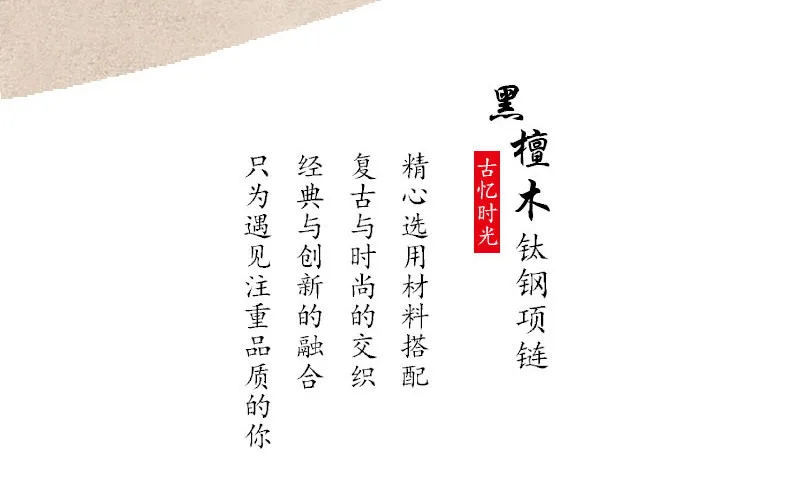 黑檀木钛钢项链
古忆时光
精心选用材料搭配
复古与时尚的交织
经典与创新的融合
只为遇见注重品质的你